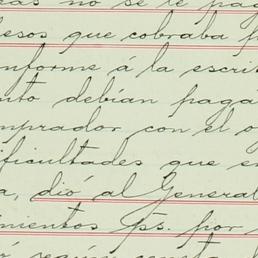 no se le pag
pesos que cobraba p
onforme á la escrit
nto debían pagá
mprador con el o
ificultades que en
a, dió al General
mientos ps. por